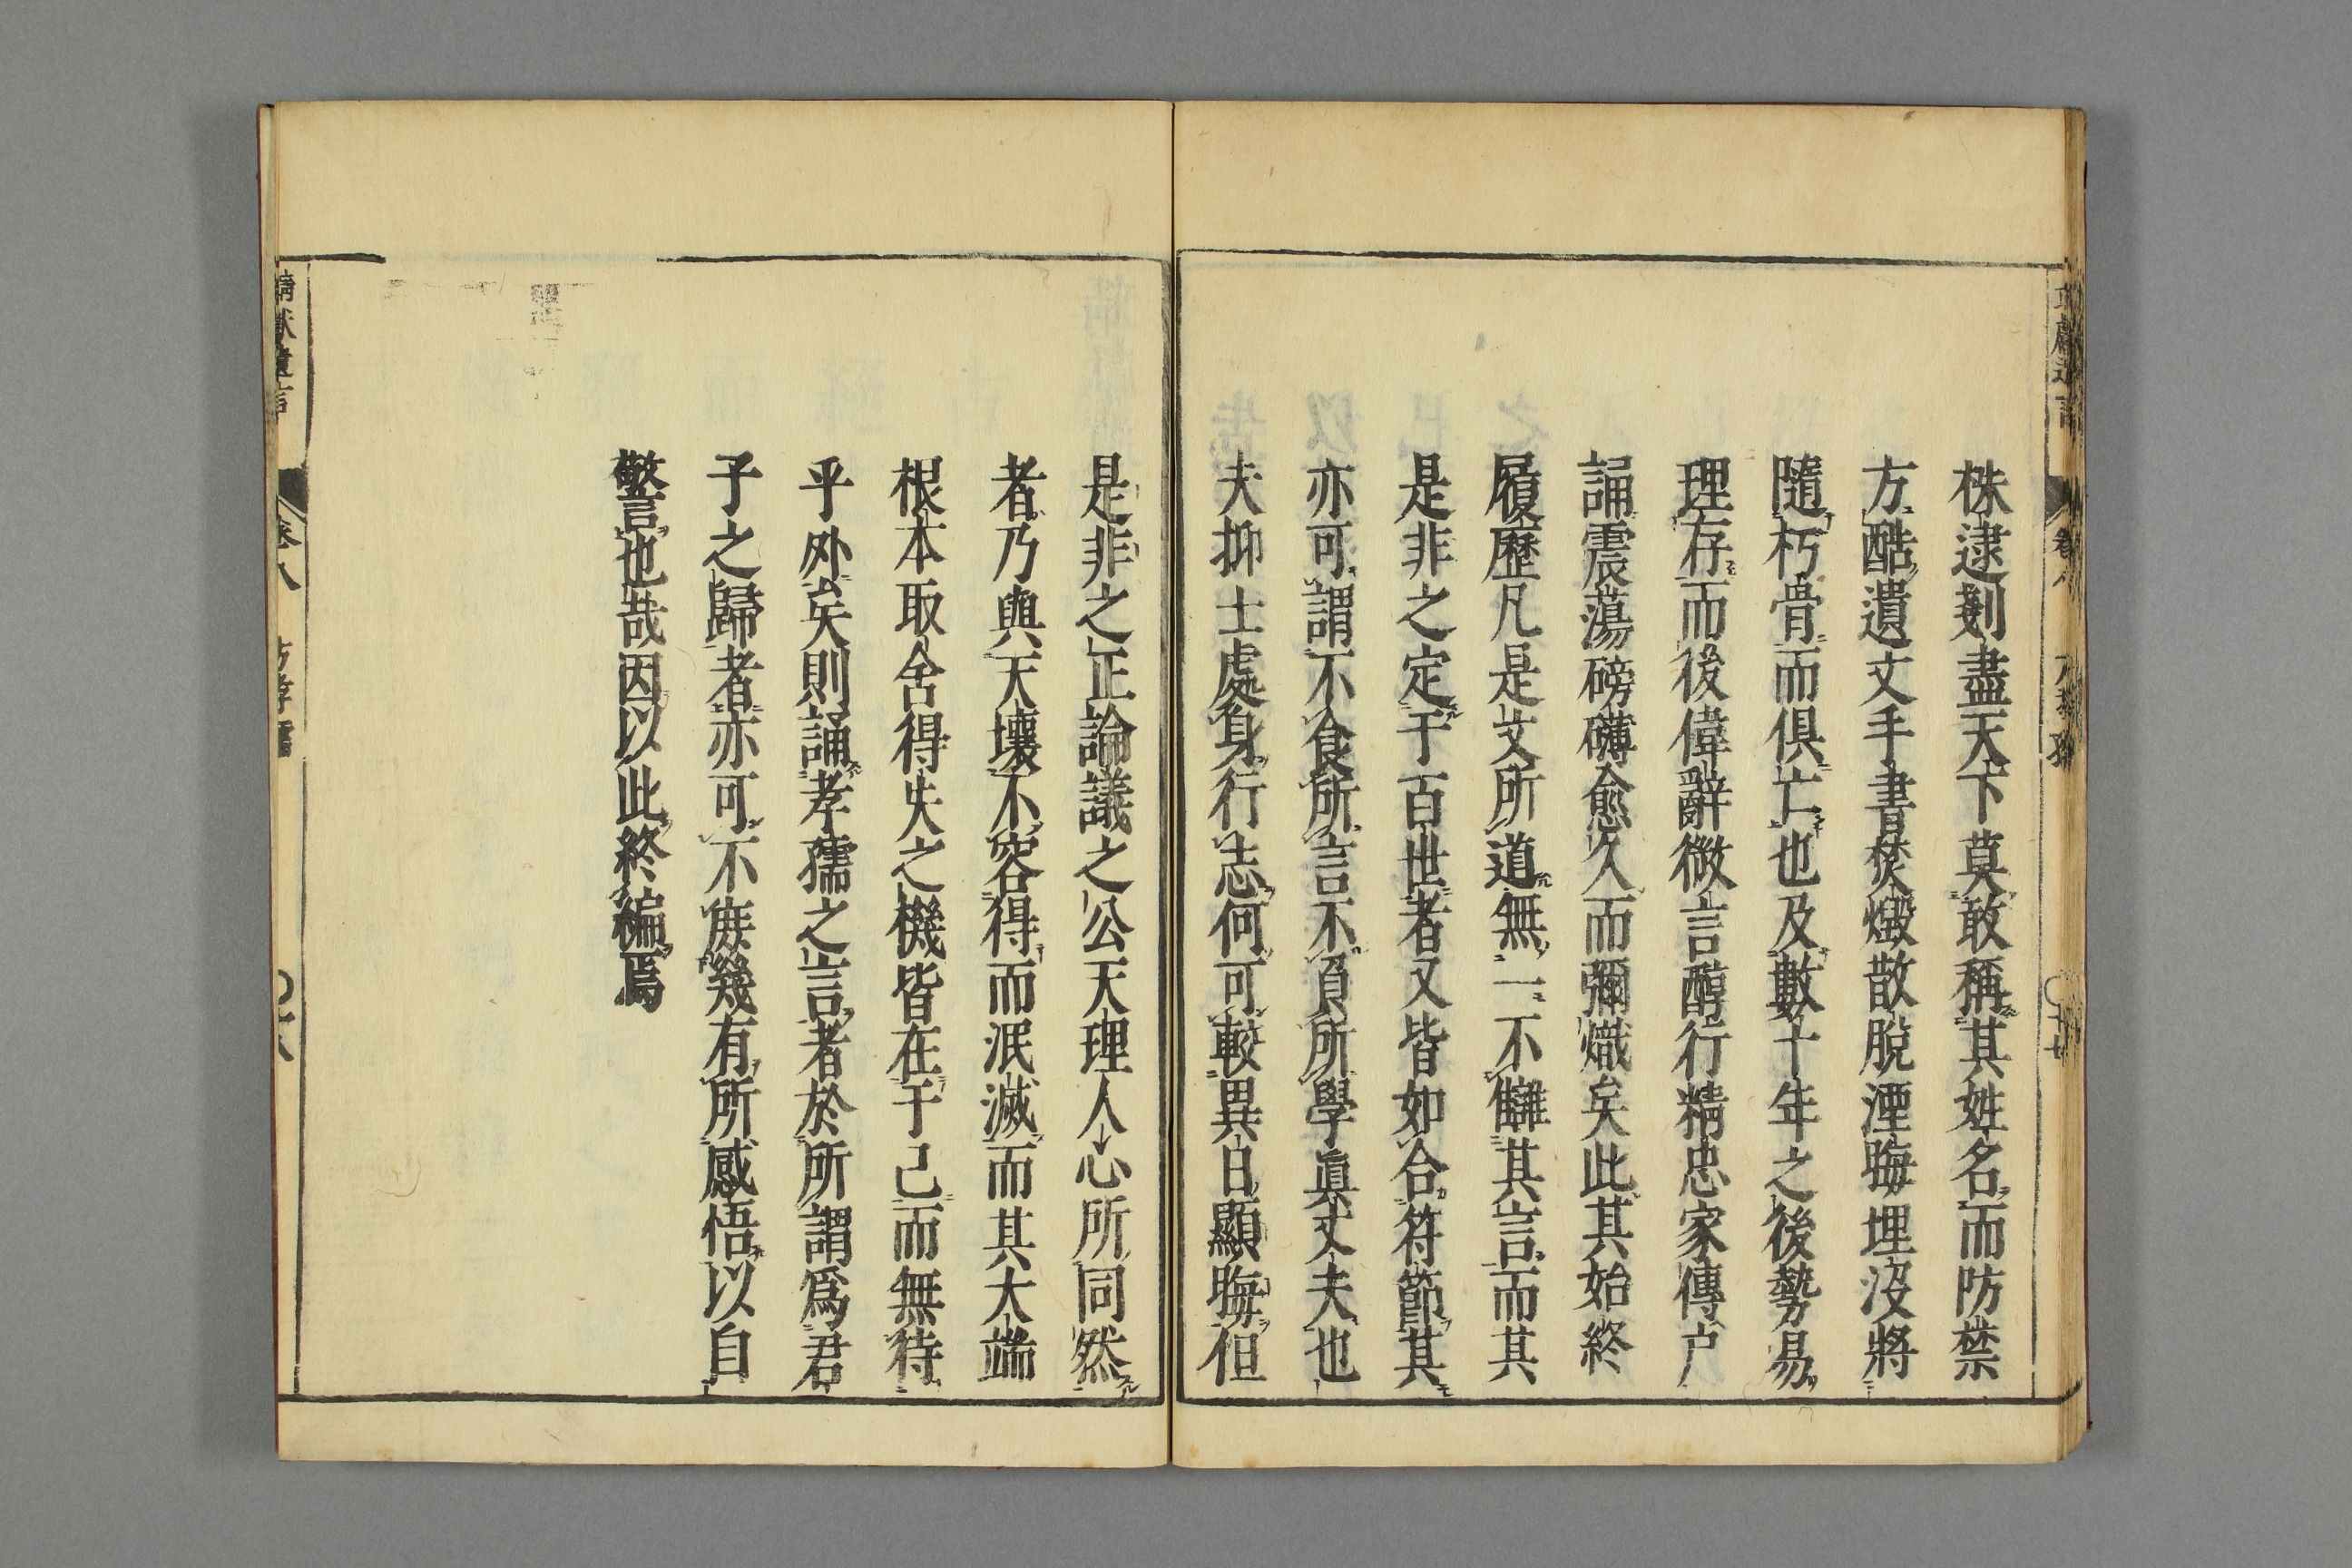 株逮剗盡天下莫敢稱其姓名而防禁
方酷遺文手書焚燬散脫湮晦埋沒將
隨朽骨而俱亡也及數十年之後勢易
理存而後偉辭微言醇行精忠家傳户
誦震蕩磅礴愈久而彌熾矣此其始終
履歷凡是文所道無一不讎其言而其
是非之定于百世者又皆如合符節其
亦可謂不食所言不負所學眞丈夫也
夫抑士處身行志何可較異日顯晦但
是非之正論議之公天理人心所同然
者乃與天壤不容得而泯滅而其大端
根本取舍得失之機皆在于己而無待
乎外矣則誦孝孺之言者於所謂爲君
子之歸者亦可不庶幾有所感悟以自
警也哉因以此終編焉
靖獻遺言 卷八 方孝孺 〇十八